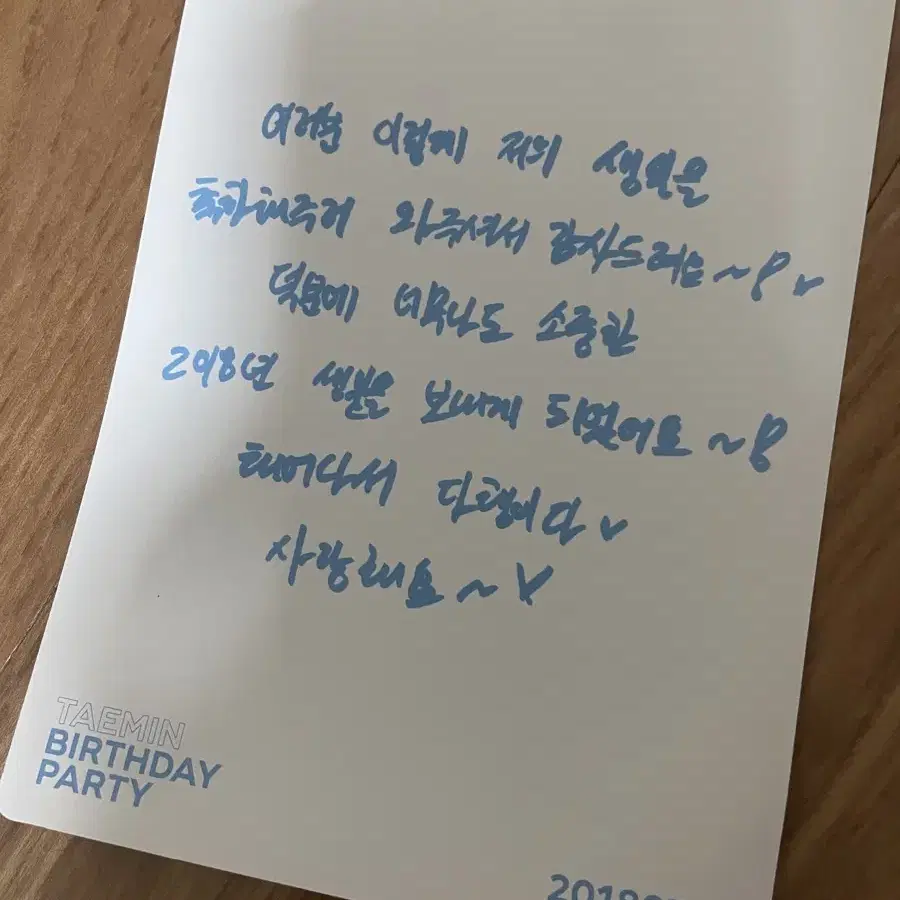 여러분 이렇게 저의 생일을
축하해주러 와주셔서 감사드려요~!
덕분에 너무나도 소중한
2018년 생일을 보내게 되었어요~!
태어나서 다행이다
사랑해요~
TAEMIN
BIRTHDAY
PARTY